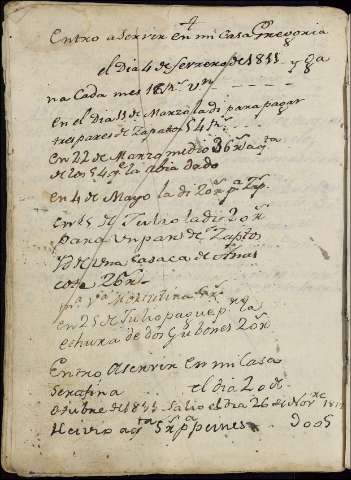 Entro a servir en mi Casa Gregoria
el dia 4 de febrero de 1811 y ga
na Cada mes 18 rs vn
en el Dia 13 de Marzo la di para pagar
tres pares de Zapatos 54 rs
en 22 de Marzo me dio 36 rs a qta
de los 54 qe la abia dado
en 4 de Mayo la di 20 rs pa Zap.
en 15 de Julio la di 20 rs
para un par de Zaptos
Yd de una Casaca de
26 rs
en 25 de Julio pague pr la
echura de dos Gubones 20 rs
Entro a servir en mi Casa
Serafina el dia 20 de
Octubre de 1811 Salio el dia 26 de Novre 1811
Recivio a qta 5 rs